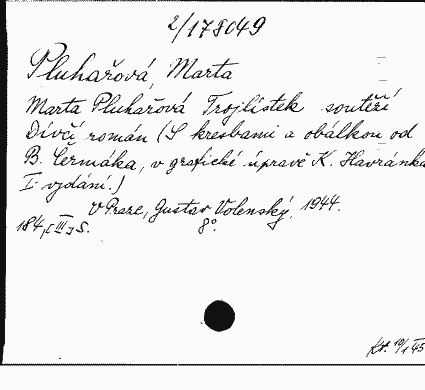 2/178049
Pluhařová, Marta
Marta Pluhařová Trojlístek soutěží
Dívčí román (S kresbami a obálkou od
B. Čermáka, v grafické úpravě K. Havránka
I. vydání.)
V Praze, Gustav Volenský, 1944.
184, [III] s. 8°.
Kt. 10/1 45